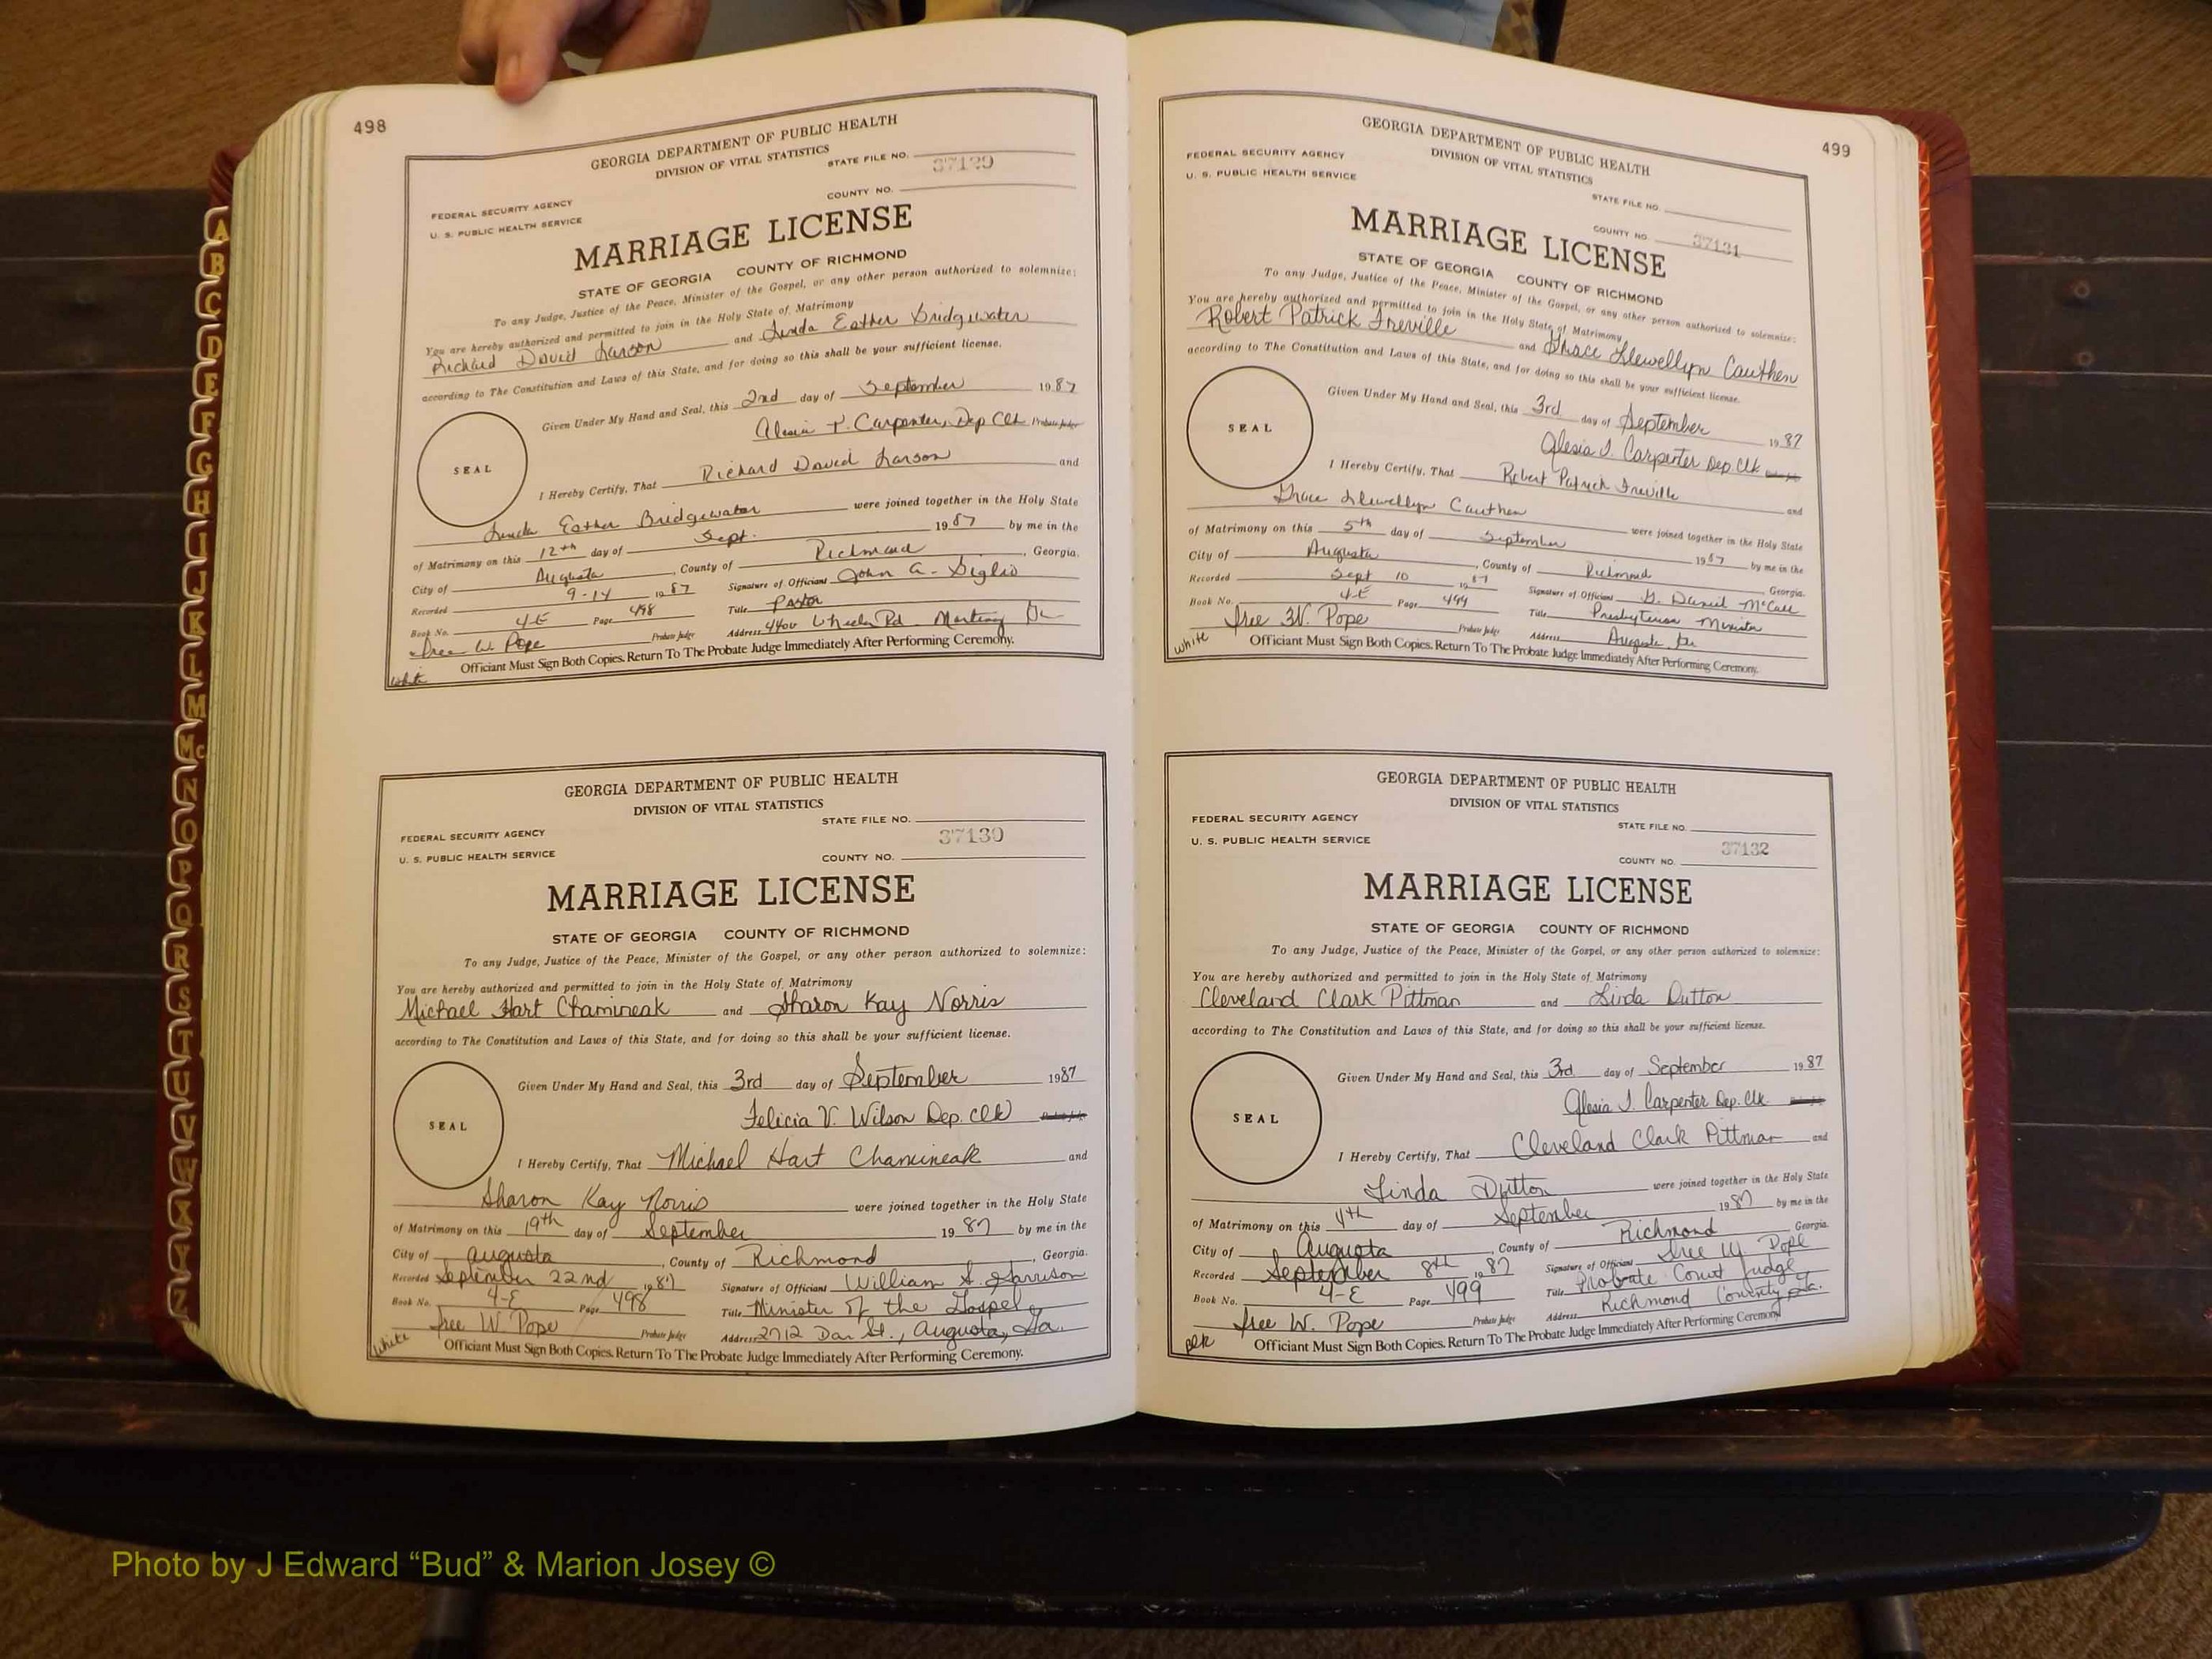 498
GEORGIA DEPARTMENT OF PUBLIC HEALTH
DIVISION OF VITAL STATISTICS
STATE FILE NO. 37129
COUNTY NO.
FEDERAL SECURITY AGENCY
U. S. PUBLIC HEALTH SERVICE
MARRIAGE LICENSE
STATE OF GEORGIA COUNTY OF RICHMOND
To any Judge, Justice of the Peace, Minister of the Gospel, or any other person authorized to solemnize:
You are hereby authorized and permitted to join in the Holy State of Matrimony
Richard David Larson and Linda Esther Bridgewater
according to The Constitution and Laws of this State, and for doing so this shall be your sufficient license.
Given Under My Hand and Seal, this 2nd day of September 1987
Alesia T. Carpenter, Dep Clk Probate Judge
SEAL
I Hereby Certify, That Richard David Larson and
Linda Esther Bridgewater were joined together in the Holy State
of Matrimony on this 12th day of Sept. 1987 by me in the
City of Augusta, County of Richmond, Georgia.
Recorded 9-14 1987 Signature of Officiant John A. Siglio
Book No. 4-E Page 498 Title Pastor
Probate Judge Address 4400 Wheeler Rd Martinez Ga
W. Pope
White
Officiant Must Sign Both Copies. Return To The Probate Judge Immediately After Performing Ceremony.
GEORGIA DEPARTMENT OF PUBLIC HEALTH
DIVISION OF VITAL STATISTICS
STATE FILE NO.
FEDERAL SECURITY AGENCY
37130
U. S. PUBLIC HEALTH SERVICE
COUNTY NO.
MARRIAGE LICENSE
STATE OF GEORGIA COUNTY OF RICHMOND
To any Judge, Justice of the Peace, Minister of the Gospel, or any other person authorized to solemnize:
You are hereby authorized and permitted to join in the Holy State of Matrimony
Michael Hart Chamineak and Sharon Kay Norris
according to The Constitution and Laws of this State, and for doing so this shall be your sufficient license.
Given Under My Hand and Seal, this 3rd day of September 1987
Felicia V. Wilson Dep. Clk
SEAL
I Hereby Certify, That Michael Hart Chamineak and
Sharon Kay Norris were joined together in the Holy State
of Matrimony on this 19th day of September 1987 by me in the
City of Augusta, County of Richmond, Georgia.
Recorded September 22nd 1987 Signature of Officiant William S. Harrison
Book No. 4-E Page 498 Title Minister of the Gospel
W. Pope Probate Judge Address 2712 Dan St., Augusta, Ga.
White
Officiant Must Sign Both Copies. Return To The Probate Judge Immediately After Performing Ceremony.
499
GEORGIA DEPARTMENT OF PUBLIC HEALTH
DIVISION OF VITAL STATISTICS
FEDERAL SECURITY AGENCY
U. S. PUBLIC HEALTH SERVICE
STATE FILE NO.
COUNTY NO. 37131
MARRIAGE LICENSE
STATE OF GEORGIA COUNTY OF RICHMOND
To any Judge, Justice of the Peace, Minister of the Gospel, or any other person authorized to solemnize:
You are hereby authorized and permitted to join in the Holy State of Matrimony
Robert Patrick Treville and Grace Llewellyn Cauthen
according to The Constitution and Laws of this State, and for doing so this shall be your sufficient license.
Given Under My Hand and Seal, this 3rd day of September 1987
Alesia T. Carpenter Dep. Clk
SEAL
I Hereby Certify, That Robert Patrick Treville and
Grace Llewellyn Cauthen were joined together in the Holy State
of Matrimony on this 5th day of September 1987 by me in the
City of Augusta, County of Richmond Georgia.
Recorded Sept 10 1987 Signature of Officiant G. Daniel McCall
Book No. 4-E Page 499 Title Presbyterian Minister
W. Pope Probate Judge Address Augusta Ga
White
Officiant Must Sign Both Copies. Return To The Probate Judge Immediately After Performing Ceremony.
GEORGIA DEPARTMENT OF PUBLIC HEALTH
DIVISION OF VITAL STATISTICS
FEDERAL SECURITY AGENCY
STATE FILE NO.
U. S. PUBLIC HEALTH SERVICE
37132
COUNTY NO.
MARRIAGE LICENSE
STATE OF GEORGIA COUNTY OF RICHMOND
To any Judge, Justice of the Peace, Minister of the Gospel, or any other person authorized to solemnize:
You are hereby authorized and permitted to join in the Holy State of Matrimony
Cleveland Clark Pittman and Linda Dutton
according to The Constitution and Laws of this State, and for doing so this shall be your sufficient license.
Given Under My Hand and Seal, this 3rd day of September 1987
Alesia T. Carpenter Dep. Clk
SEAL
I Hereby Certify, That Cleveland Clark Pittman and
Linda Dutton were joined together in the Holy State
of Matrimony on this 4th day of September 1987 by me in the
City of Augusta, County of Richmond Georgia.
Recorded September 8th 1987 Signature of Officiant W. Pope
Book No. 4-E Page 499 Title Probate Court Judge
W. Pope Probate Judge Address Richmond County, Ga.
Blk
Officiant Must Sign Both Copies. Return To The Probate Judge Immediately After Performing Ceremony.
A
B
C
D
E
F
G
H
I
J
K
L
M
Mc
N
O
P
Q
R
S
T
U
V
W
X
Y
Z
Photo by J Edward “Bud” & Marion Josey ©